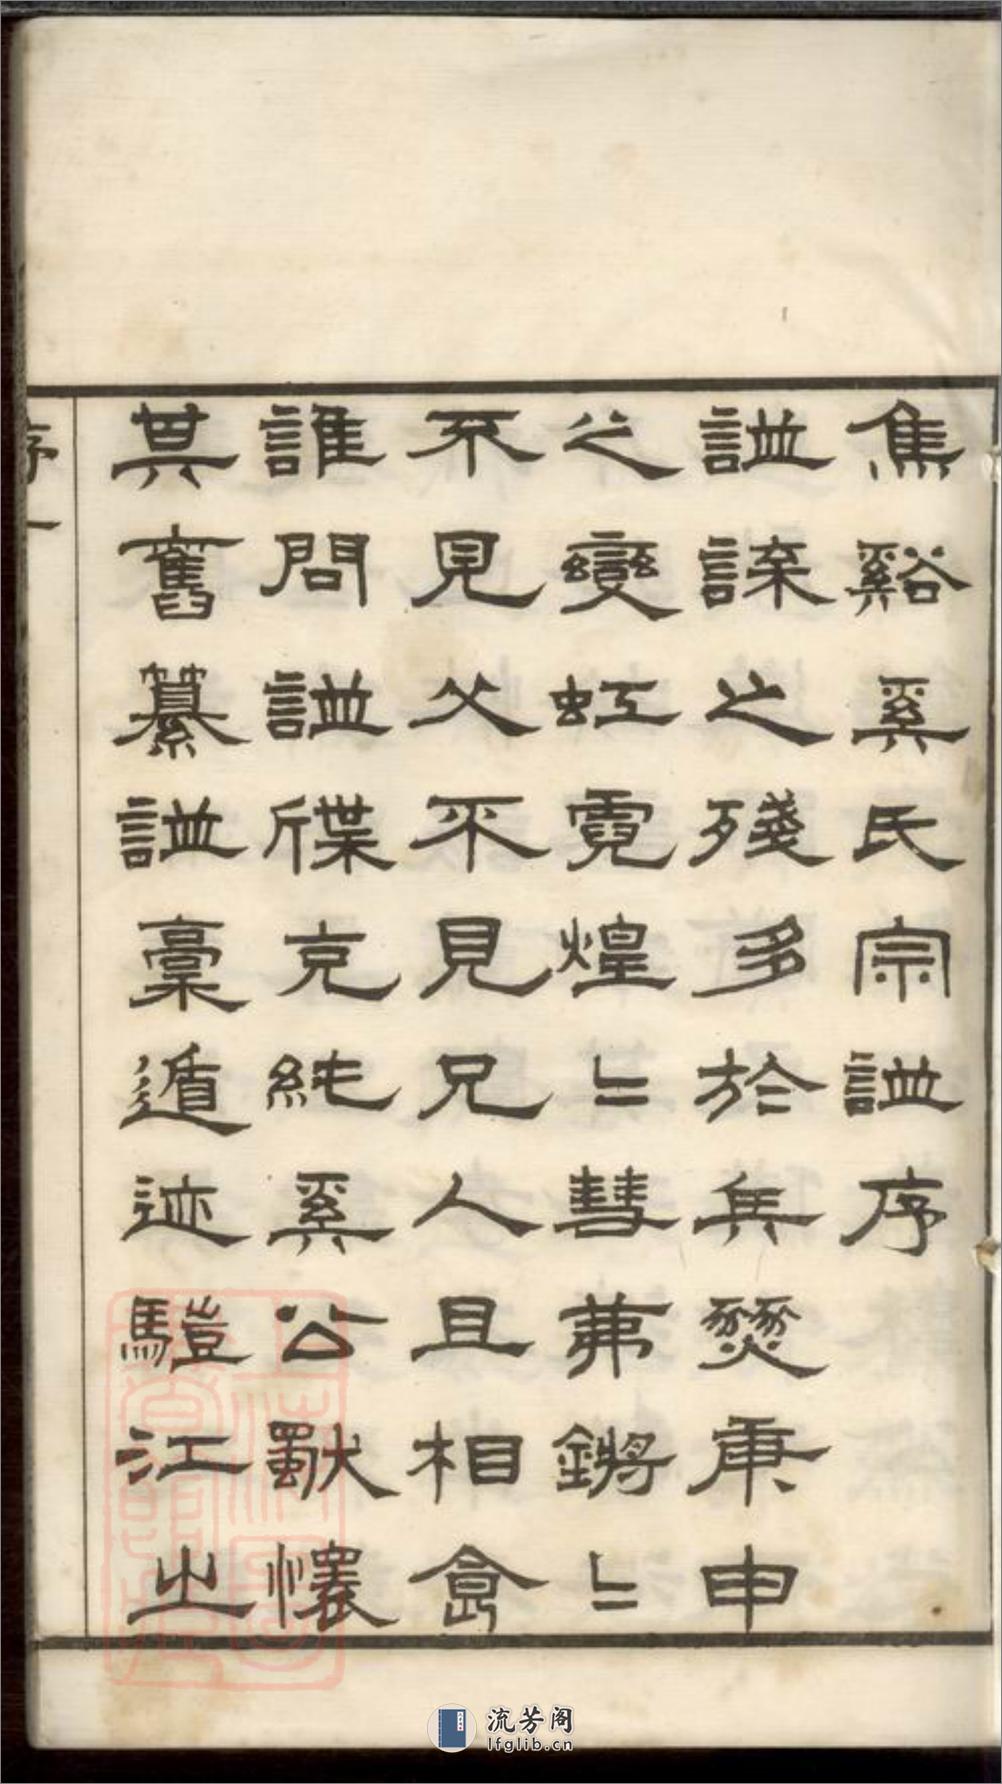 焦谿奚氏宗譜序
譜諜之殘多於兵燹庚申
之變虹霓煌〻彗茀鏘〻
不見父不見兄人且相食
誰問譜牒克純奚公獻懷
其舊纂譜稾遁迹騐江之
序一
流芳阁
lfglib.cn